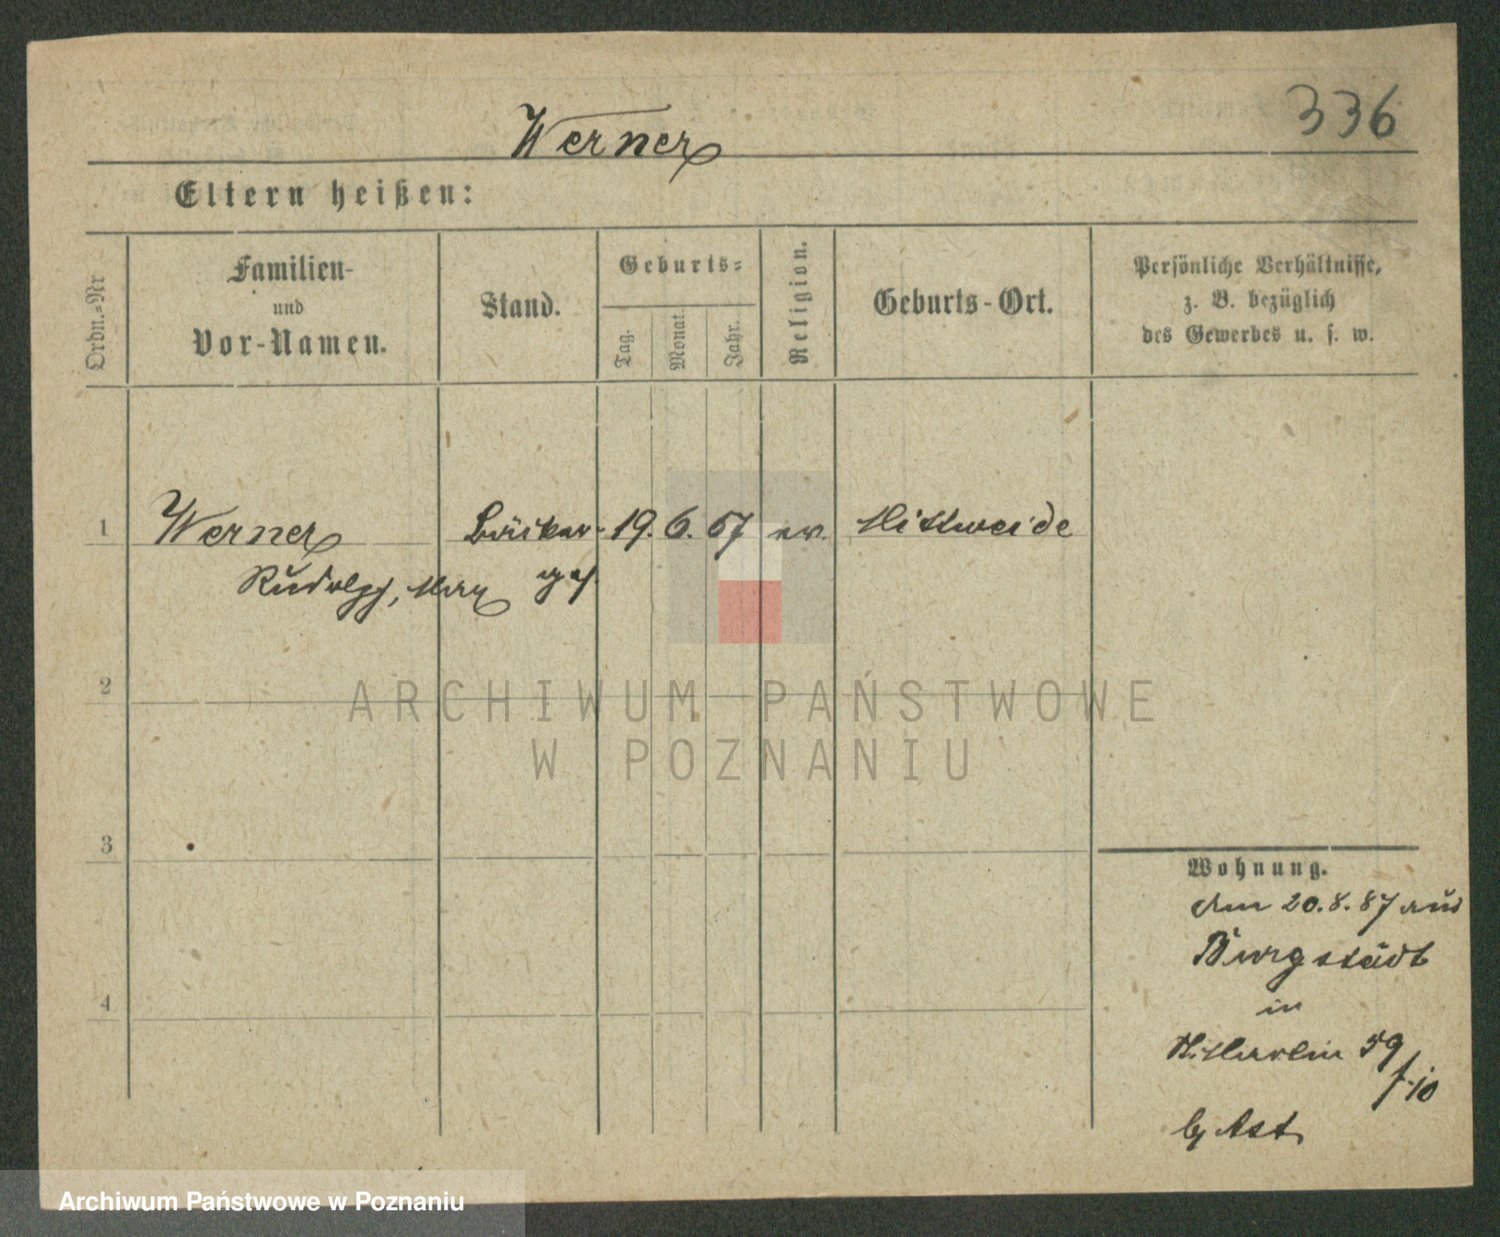 336
Werner
Eltern heißen:
Ordn.-Nr
Familien-
und
Vor-Namen.
Stand.
Geburts-
Tag.
Monat.
Jahr.
Religion.
Geburts-Ort.
Persönliche Verhältnisse,
z. B. bezüglich
des Gewerbes u. s. w.
1 Werner Bäcker- 19. 6. 67 ev. Mittweida
Rudolph, Max
2
ARCHIWUM PAŃSTWOWE
W POZNANIU
3
Wohnung.
den 20.8.87 aus
Burgstädt
4
in
59
10
Archiwum Państwowe w Poznaniu